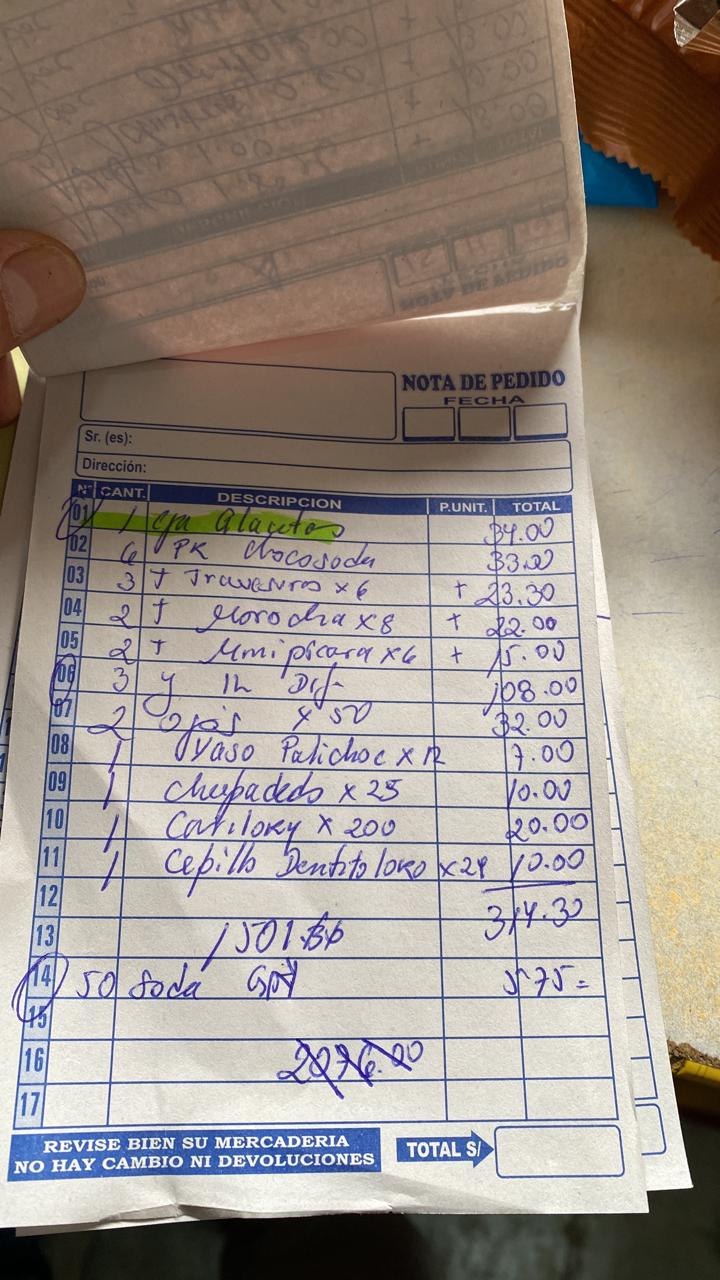 NOTA DE PEDIDO
FECHA
Sr. (es):
Dirección:
Nº CANT. DESCRIPCION P.UNIT. TOTAL
01 1 cja Glacitas 34.00
02 6 PK chocosoda 33.00
03 3 + Travesuras x 6 + 23.30
04 2 + Morocha x 8 + 22.00
05 2 + Mini picara x 6 + 15.00
06 3 108.00
07 2 Ojos x 50 32.00
08 1 Vaso Palichoc x 12 7.00
09 1 chupadedo x 25 10.00
10 1 x 200 20.00
11 1 Cepillo Dentito loko x 24 10.00
12 314.30
13 1501.
14 50 Soda 575=
15
16 2076.00
17
REVISE BIEN SU MERCADERIA
NO HAY CAMBIO NI DEVOLUCIONES
TOTAL S/